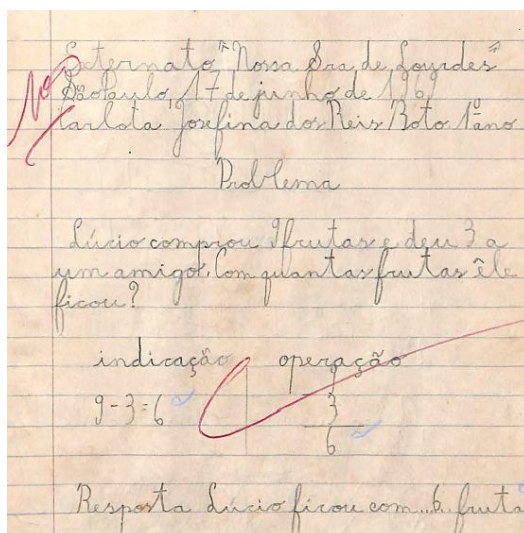 Externato "Nossa Sra de Lourdes"
São Paulo, 17 de junho de 196
Carlota Josefina dos Reis Boto 1º ano
Problema
Lúcio comprou 9 frutas e deu 3 a
um amigo. Com quantas frutas êle
ficou?
indicação operação
9-3=6 3
6
Resposta Lúcio ficou com 6 fruta